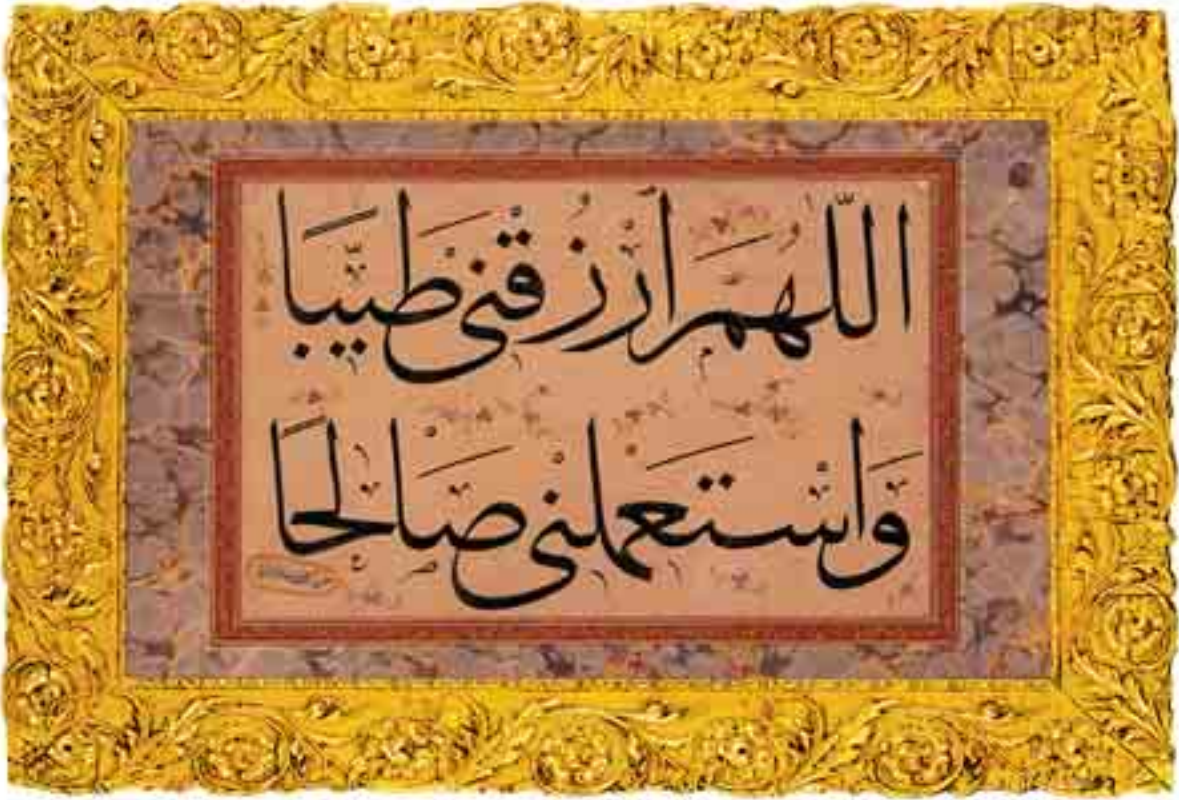 اللّهمّ ارْزُقْنى طَيِّبًا
وَاسْتَعْمِلْنى صَالِحًا